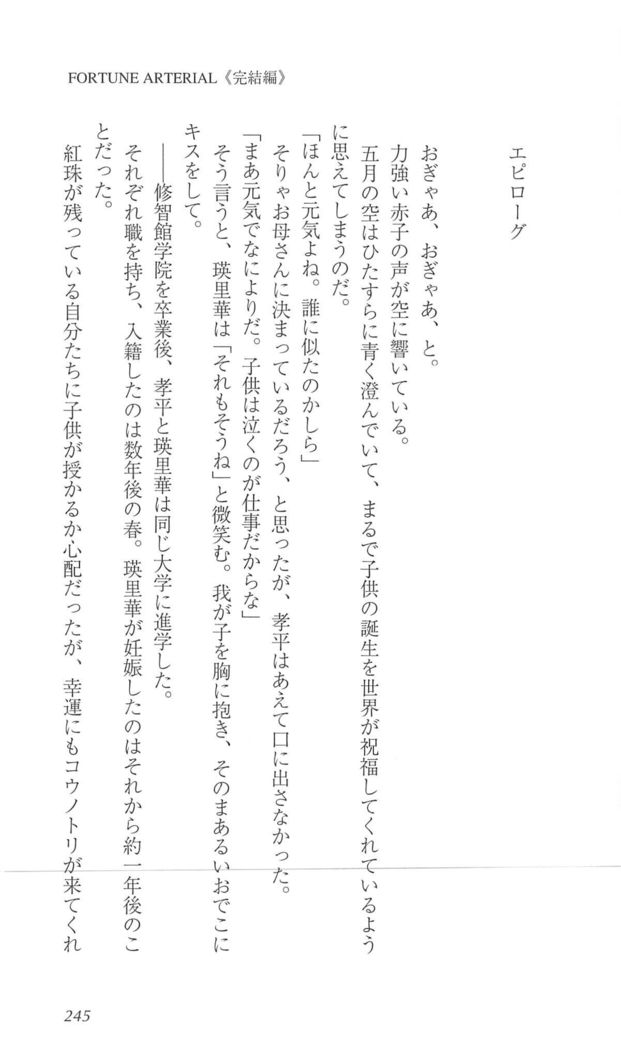 FORTUNE ARTERIAL《完結編》
エピローグ
おぎゃあ、おぎゃあ、と。
力強い赤子の声が空に響いている。
五月の空はひたすらに青く澄んでいて、まるで子供の誕生を世界が祝福してくれているよう
に思えてしまうのだ。
「ほんと元気よね。誰に似たのかしら」
そりゃお母さんに決まっているだろう、と思ったが、孝平はあえて口に出さなかった。
「まあ元気でなによりだ。子供は泣くのが仕事だからな」
そう言うと、瑛里華は「それもそうね」と微笑む。我が子を胸に抱き、そのまあるいおでこに
キスをして。
――修智館学院を卒業後、孝平と瑛里華は同じ大学に進学した。
それぞれ職を持ち、入籍したのは数年後の春。瑛里華が妊娠したのはそれから約一年後のこ
とだった。
紅珠が残っている自分たちに子供が授かるか心配だったが、幸運にもコウノトリが来てくれ
245